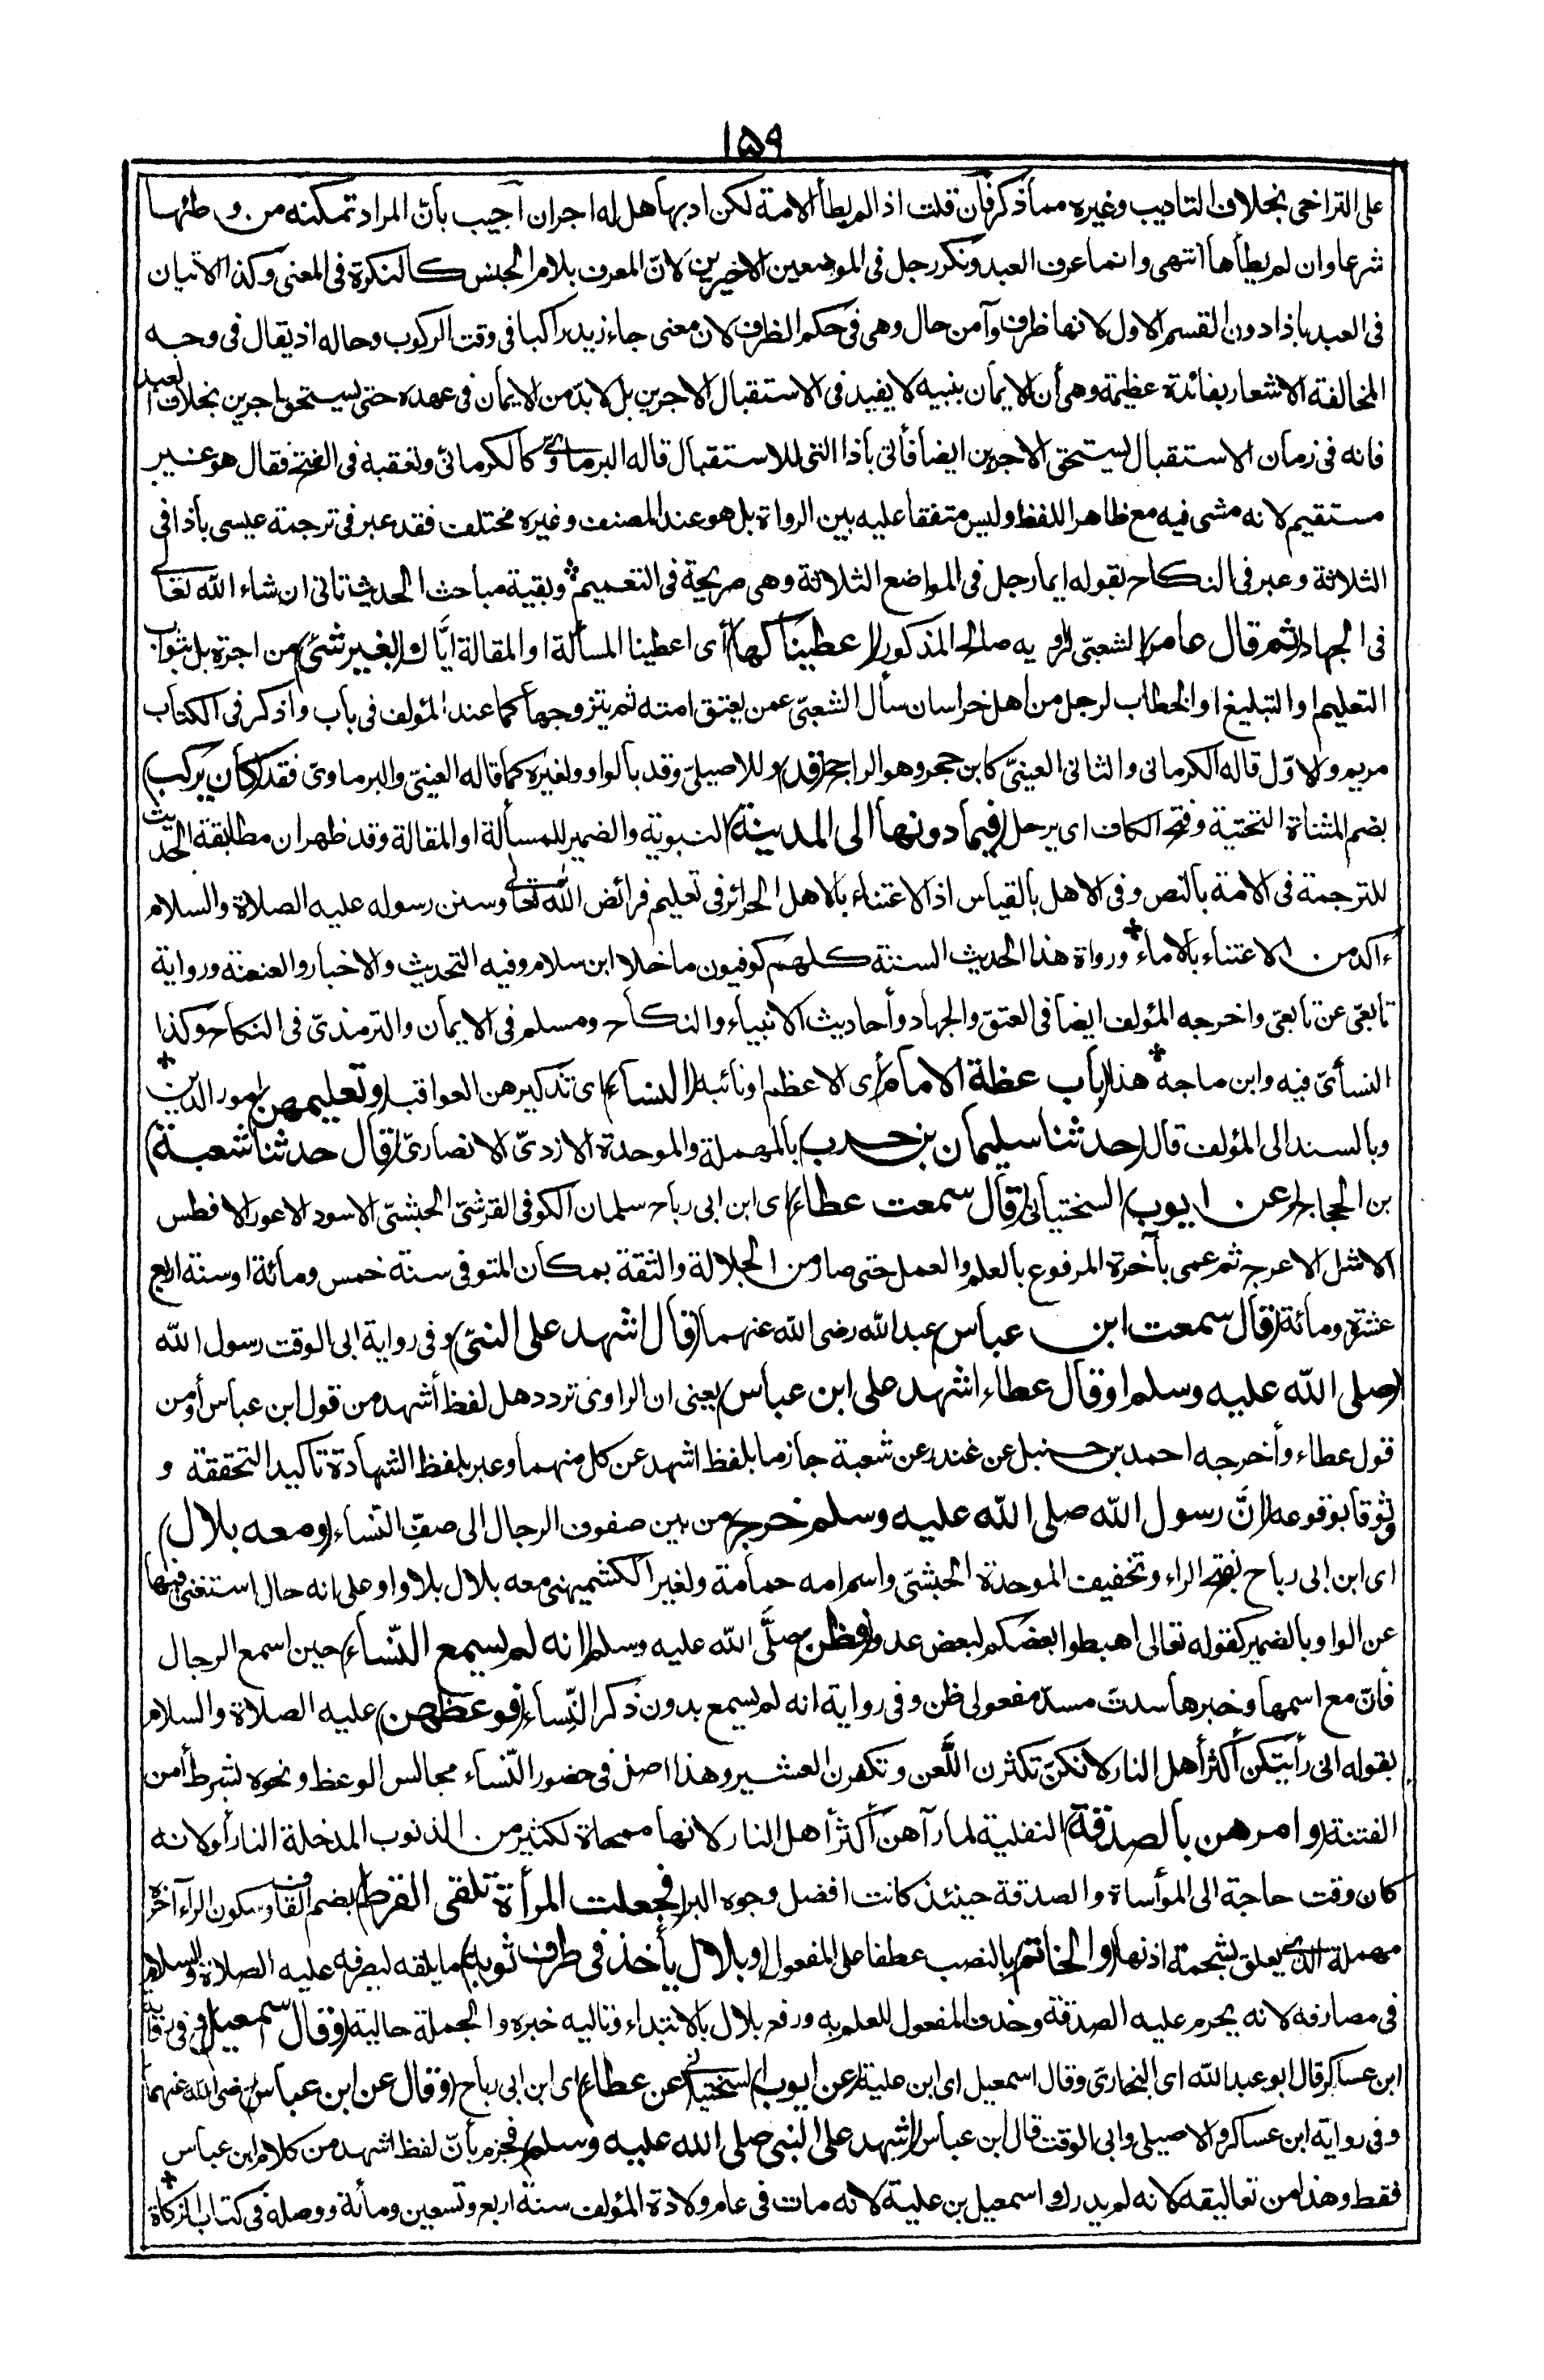 ١٥٩
على التراخى بخلاف التاديب وغيره مما ذكر فان قلت اذا لم يطأ الامة لكن ادبها هل له اجران أجيب بأنّ المراد تمكنه من وطئها
شرعا وان لم يطأها انتهى وانما عرف العبد ونكر رجل فى الموضعين الاخيرين لانّ المعرف بلام الجنس كالنكرة فى المعنى وكذا الاتيان
فى العبد باذا دون القسم الاول لانها ظرف وآمن حال وهى فى حكم الظرف لان معنى جاء زيد راكبا فى وقت الركوب وحاله اذ يقال فى وجه
المخالفة الاشعار بفائدة عظيمة وهى أن الايمان بنبيه لا يفيد فى الاستقبال الاجرين بل لابدّ من الايمان فى عهده حتى يستحق اجرين بخلاف العبد
فانه فى زمان الاستقبال يستحق الاجرين ايضا فأتى باذا التى للاستقبال قاله البرماوىّ كالكرمانى وتعقبه فى الفتح فقال هو غير
مستقيم لانه مشى فيه مع ظاهر اللفظ وليس متفقا عليه بين الرواة بل هو عند المصنف وغيره مختلف فقد عبر فى ترجمة عيسى باذا فى
الثلاثة وعبر فى النكاح بقوله ايما رجل فى المواضع الثلاثة وهى صريحة فى التعميم * وبقية مباحث الحديث تاتى ان شاء الله تعالى
فى الجهاد (ثم قال عامر) الشعبىّ لراويه صالح المذكور (اعطيناكها) أى اعطينا المسألة او المقالة ايّاك (بغير شئ) من اجرة بل بثواب
التعليم او التبليغ او الخطاب لرجل من اهل خراسان سأل الشعبىّ عمن يعتق امته ثم يتزوجها كما عند المؤلف فى باب واذكر فى الكتاب
مريم والاوّل قاله الكرمانى والثانى العينىّ كابن حجر وهو الراجح (قد) وللاصيلىّ وقد بالواو ولغيره كما قاله العينىّ والبرماوىّ فقد (كان يركب)
بضم المثناة التحتية وفتح الكاف اى يرحل (فيما دونها الى المدينة) النبوية والضمير للمسألة او المقالة وقد ظهر ان مطابقة الحديث
للترجمة فى الامة بالنص وفى الاهل بالقياس اذ الاعتناء بالاهل الحرائر فى تعليم فرائض الله تعالى وسنن رسوله عليه الصلاة والسلام
ءاكد من الاعتناء بالاماء * ورواة هذا الحديث الستة كلهم كوفيون ما خلا ابن سلام وفيه التحديث والاخبار والعنعنة ورواية
تابعىّ عن تابعىّ واخرجه المؤلف ايضا فى العتق والجهاد وأحاديث الانبياء والنكاح ومسلم فى الايمان والترمذىّ فى النكاح وكذا
النسائىّ فيه وابن ماجه * هذا (باب عظة الامام) أى الاعظم او نائبه (النساء) اى تذكيرهن العواقب (وتعليمهن) امور الدين *
وبالسند الى المؤلف قال (حدثنا سليمان بن حرب) بالمهملة والموحدة الازدىّ الانصارىّ (قال حدثنا شعبة)
بن الحجاج (عن ايوب) السختيانىّ (قال سمعت عطاء) اى ابن ابى رباح سلمان الكوفى القرشىّ الحبشىّ الاسود الاعور الافطس
الاشل الاعرج ثم عمى بآخرة المرفوع بالعلم والعمل حتى صار من الجلالة والثقة بمكان المتوفى سنة خمس ومائة او سنة اربع
عشرة ومائة (قال سمعت ابن عباس) عبد الله رضى الله عنهما (قال اشهد على النبىّ) وفى رواية ابى الوقت رسول الله
(صلى الله عليه وسلم او قال عطاء اشهد على ابن عباس) يعنى ان الراوى تردد هل لفظ أشهد من قول ابن عباس أو من
قول عطاء وأخرجه احمد بن حنبل عن غندر عن شعبة جازما بلفظ اشهد عن كل منهما وعبر بلفظ الشهادة تأكيدا لتحققه و
وثوقا بوقوعه (انّ رسول الله صلى الله عليه وسلم خرج) من بين صفوف الرجال الى صفّ النساء (ومعه بلال)
اى ابن ابى رباح بفتح الراء وتخفيف الموحدة الحبشىّ واسم امه حمامة ولغير الكشميهنى معه بلال بلا واو على انه حال استغنى فيها
عن الواو بالضمير كقوله تعالى اهبطوا بعضكم لبعض عدو (فظن) صلّى الله عليه وسلم (انه لم يسمع النّساء) حين اسمع الرجال
فأنّ مع اسمها وخبرها سدت مسدّ مفعولى ظن وفى رواية انه لم يسمع بدون ذكر النّساء (فوعظهن) عليه الصلاة والسلام
بقوله انى رأيتكن أكثر أهل النار لانكنّ تكثرن اللّعن وتكفرن العشير وهذا اصل فى حضور النّساء مجالس الوعظ ونحوه بشرط أمن
الفتنة (وامرهن بالصدقة) النفلية لما رآهن أكثر أهل النار لانها ممحاة لكثير من الذنوب المدخلة النار أو لانه
كان وقت حاجة الى المؤاساة والصدقة حينئذ كانت افضل وجوه البر (فجعلت المرأة تلقى القرط) بضم القاف وسكون الراء آخره
مهملة الذى يعلق بشحمة اذنها (والخاتم) بالنصب عطفا على المفعول (وبلال يأخذ فى طرف ثوبه) ما يلقه ليصرفه عليه الصلاة والسلام
فى مصارفه لانه يحرم عليه الصدقة وحذف المفعول للعلم به ورفع بلال بالابتداء وتاليه خبره والجملة حالية (وقال اسمعيل) وفى رواية
ابن عساكر قال ابو عبد الله اى البخارىّ وقال اسمعيل اى ابن علية (عن ايوب) السختيانى (عن عطاء) اى ابن ابى رباح (وقال عن ابن عباس) رضى الله عنهما
وفى رواية ابن عساكر والاصيلى وابى الوقت قال ابن عباس (اشهد على النبى صلى الله عليه وسلم) فجزم بأنّ لفظ اشهد من كلام ابن عباس
فقط وهذا من تعاليقه لانه لم يدرك اسمعيل بن علية لانه مات فى عام ولادة المؤلف سنة اربع وتسعين ومائة ووصله فى كتاب الزكاة *